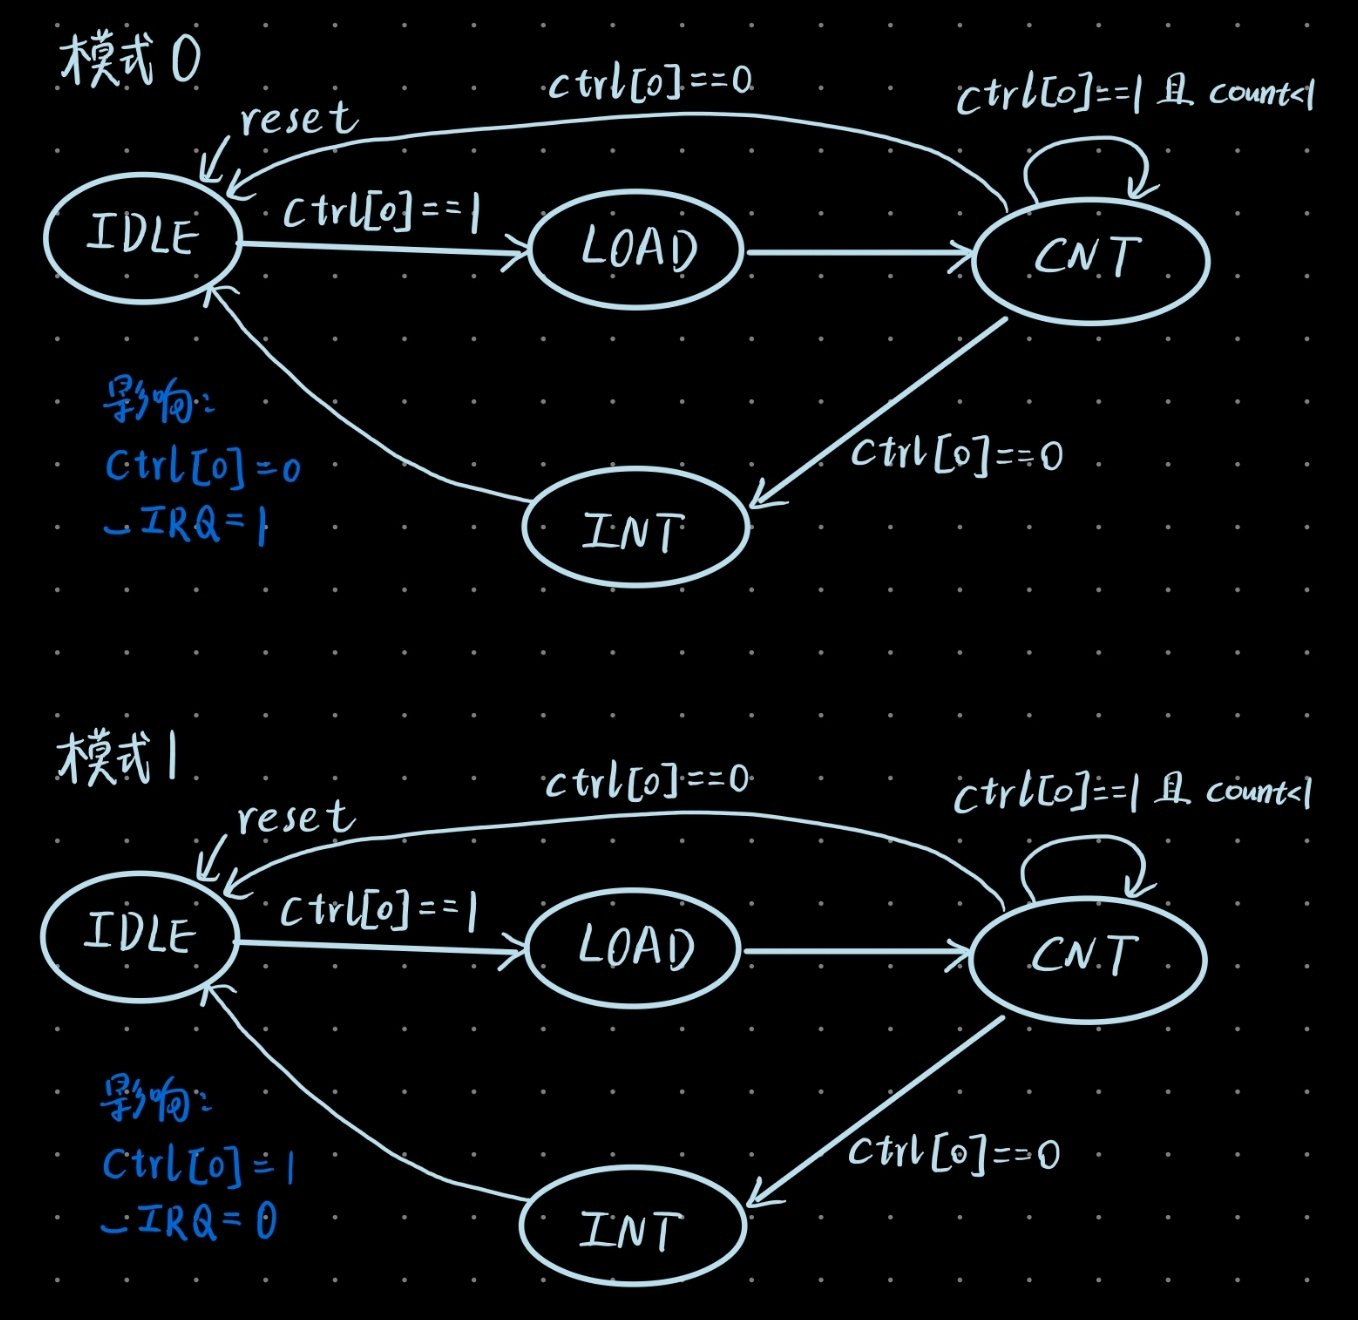 模式0
ctrl[0]==0
ctrl[0]==1 且 count<1
reset
ctrl[0]==1
IDLE
LOAD
CNT
影响:
ctrl[0]=0
_IRQ=1
ctrl[0]==0
INT
模式1
ctrl[0]==0
ctrl[0]==1 且 count<1
reset
ctrl[0]==1
IDLE
LOAD
CNT
影响:
ctrl[0]=1
_IRQ=0
ctrl[0]==0
INT